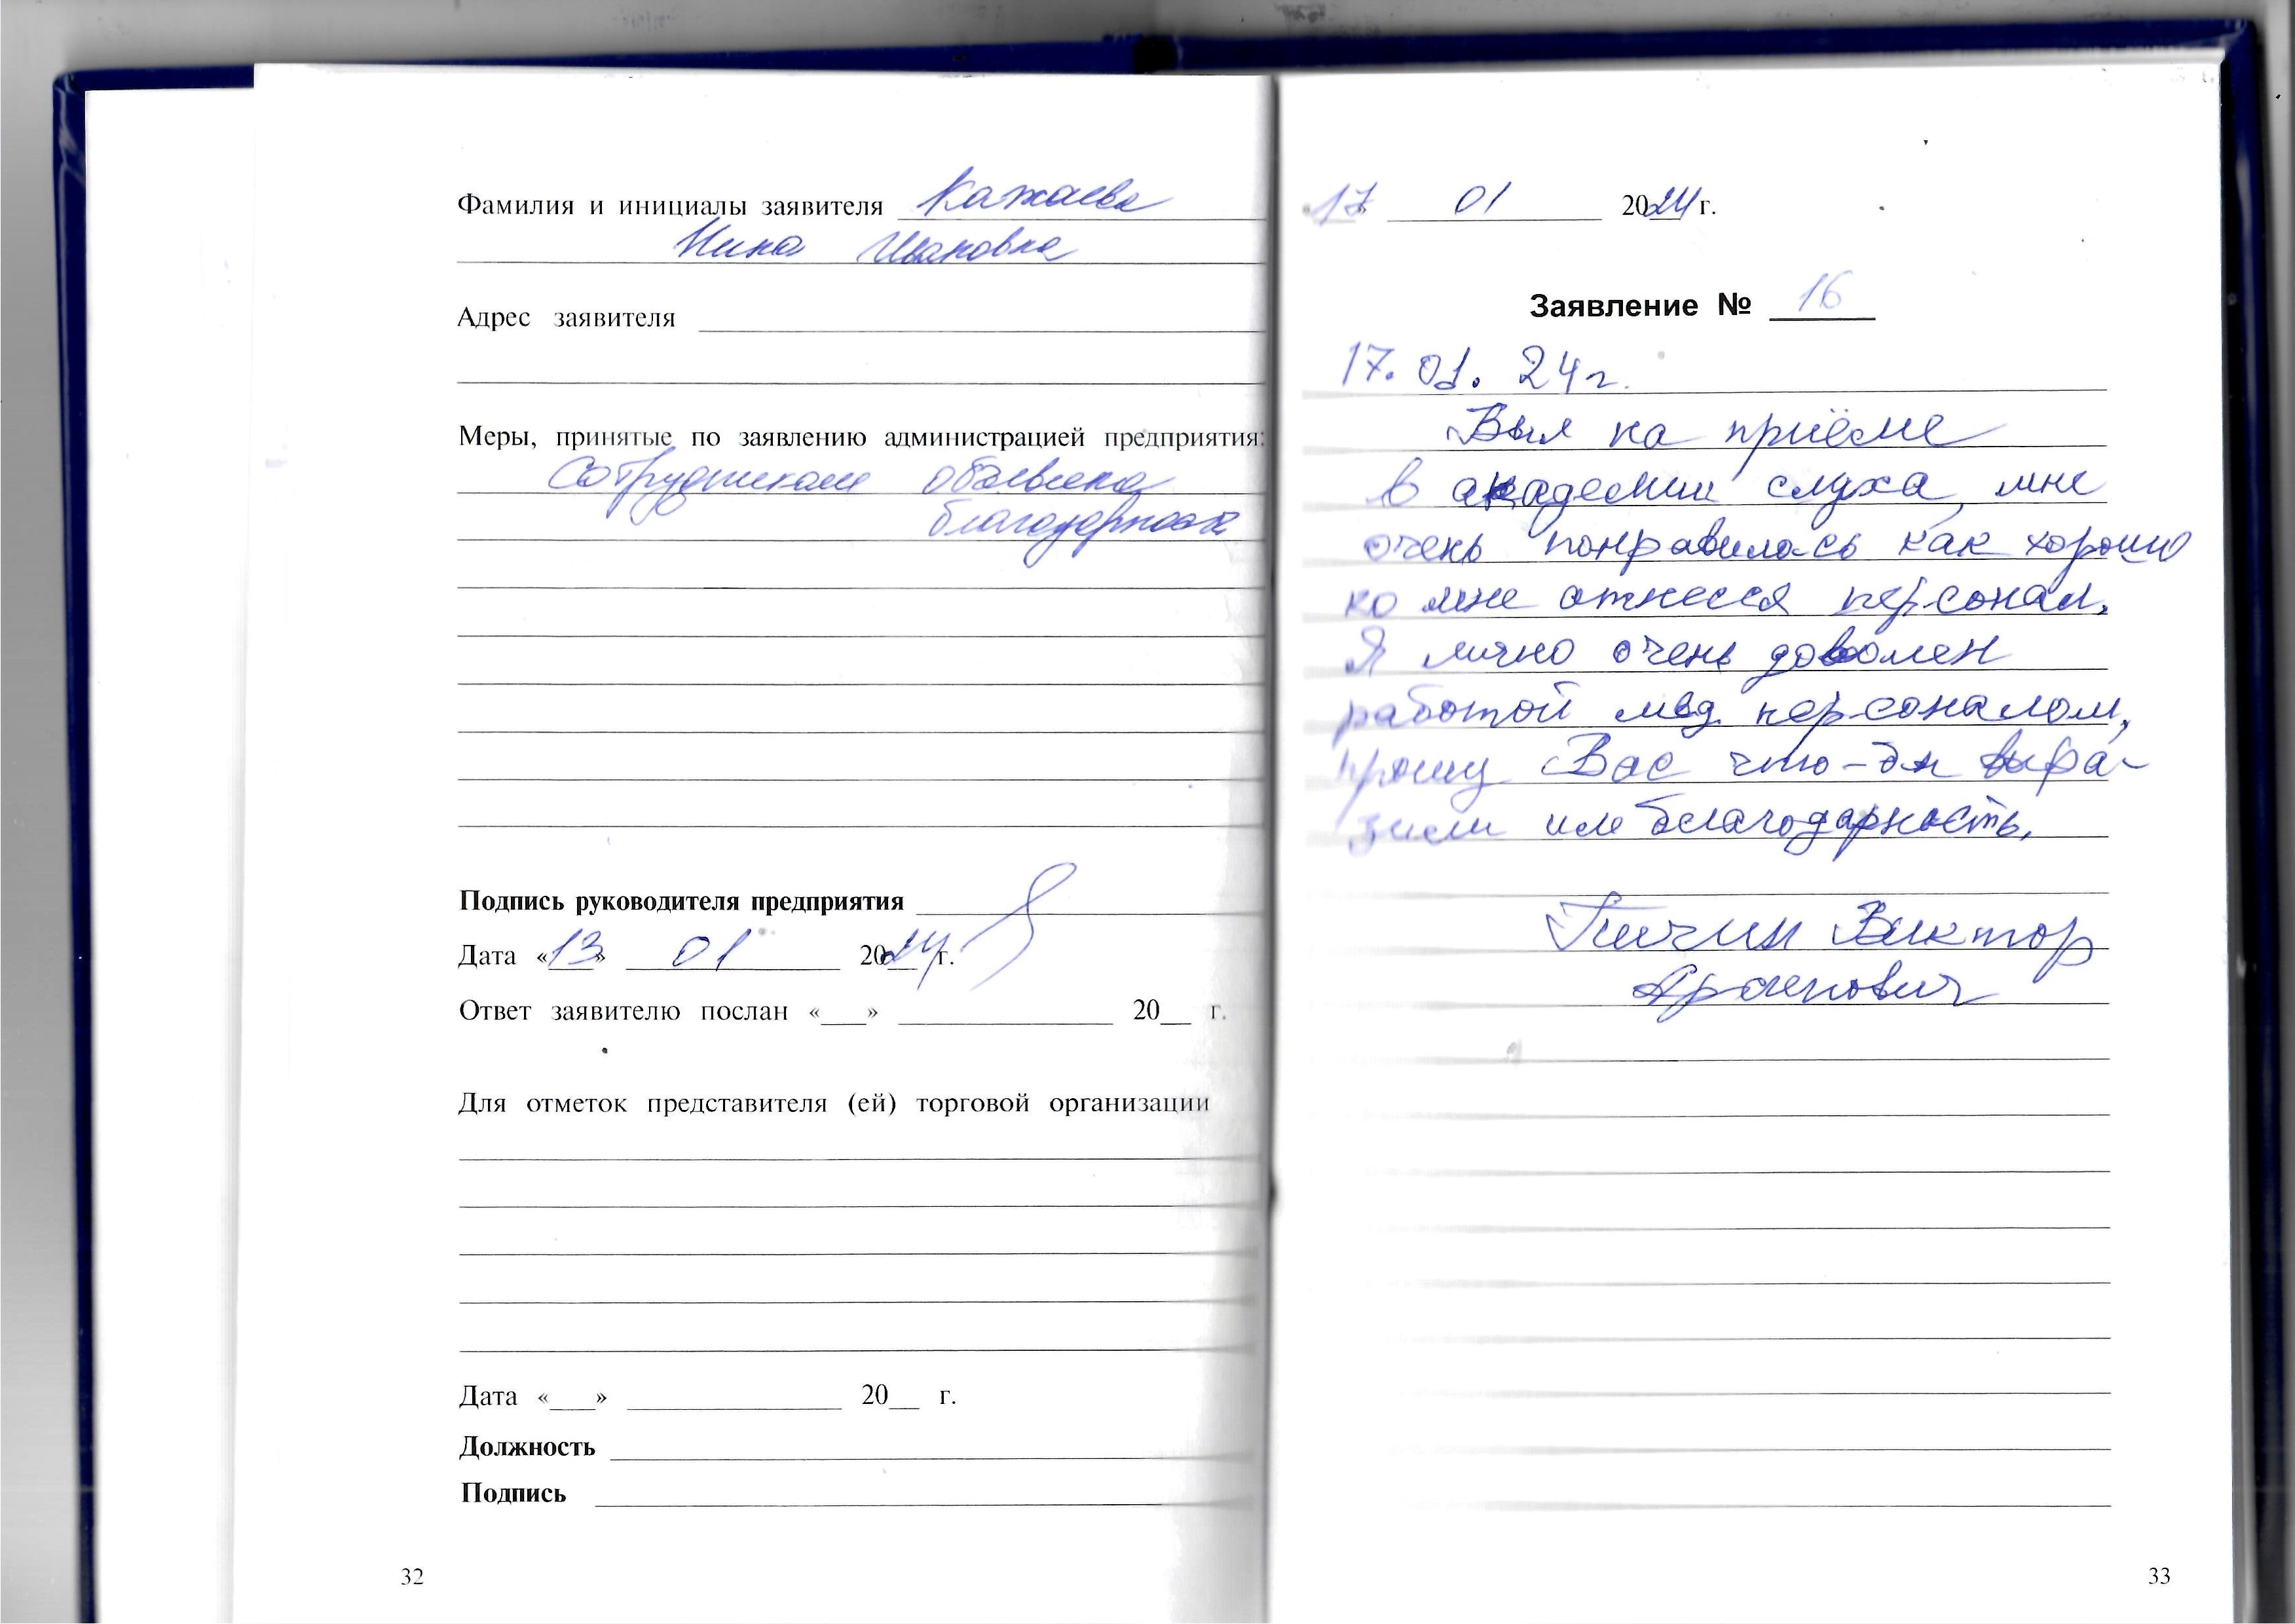 Фамилия и инициалы заявителя Кажаева
Нина Ивановна
Адрес заявителя
Меры, принятые по заявлению администрацией предприятия:
Сотрудникам объявлена
благодарность
Подпись руководителя предприятия
Дата «13» 01 2024 г.
Ответ заявителю послан «___» 20__ г.
Для отметок представителя (ей) торговой организации
Дата «___» 20__ г.
Должность
Подпись
32
«17» 01 2024 г.
Заявление № 16
17. 01. 24 г.
Был на приёме
в академии слуха, мне
очень понравилось как хорошо
ко мне отнесся персонал.
Я лично очень доволен
работой мед. персоналом,
прошу Вас что-бы выра-
зили им благодарность.
Пичин Виктор
33